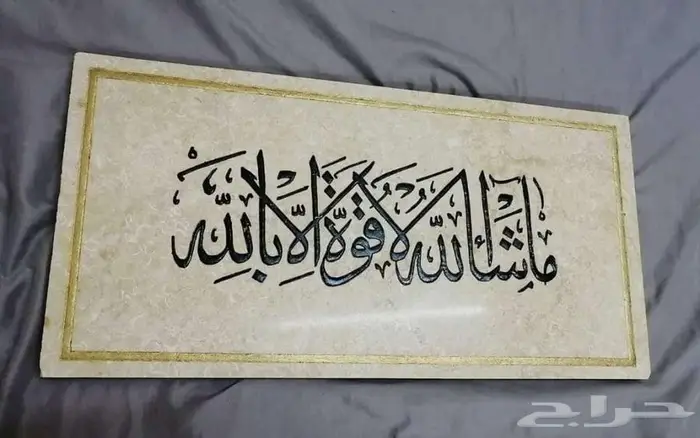 ما شاء الله لا قوة إلا بالله
حراج